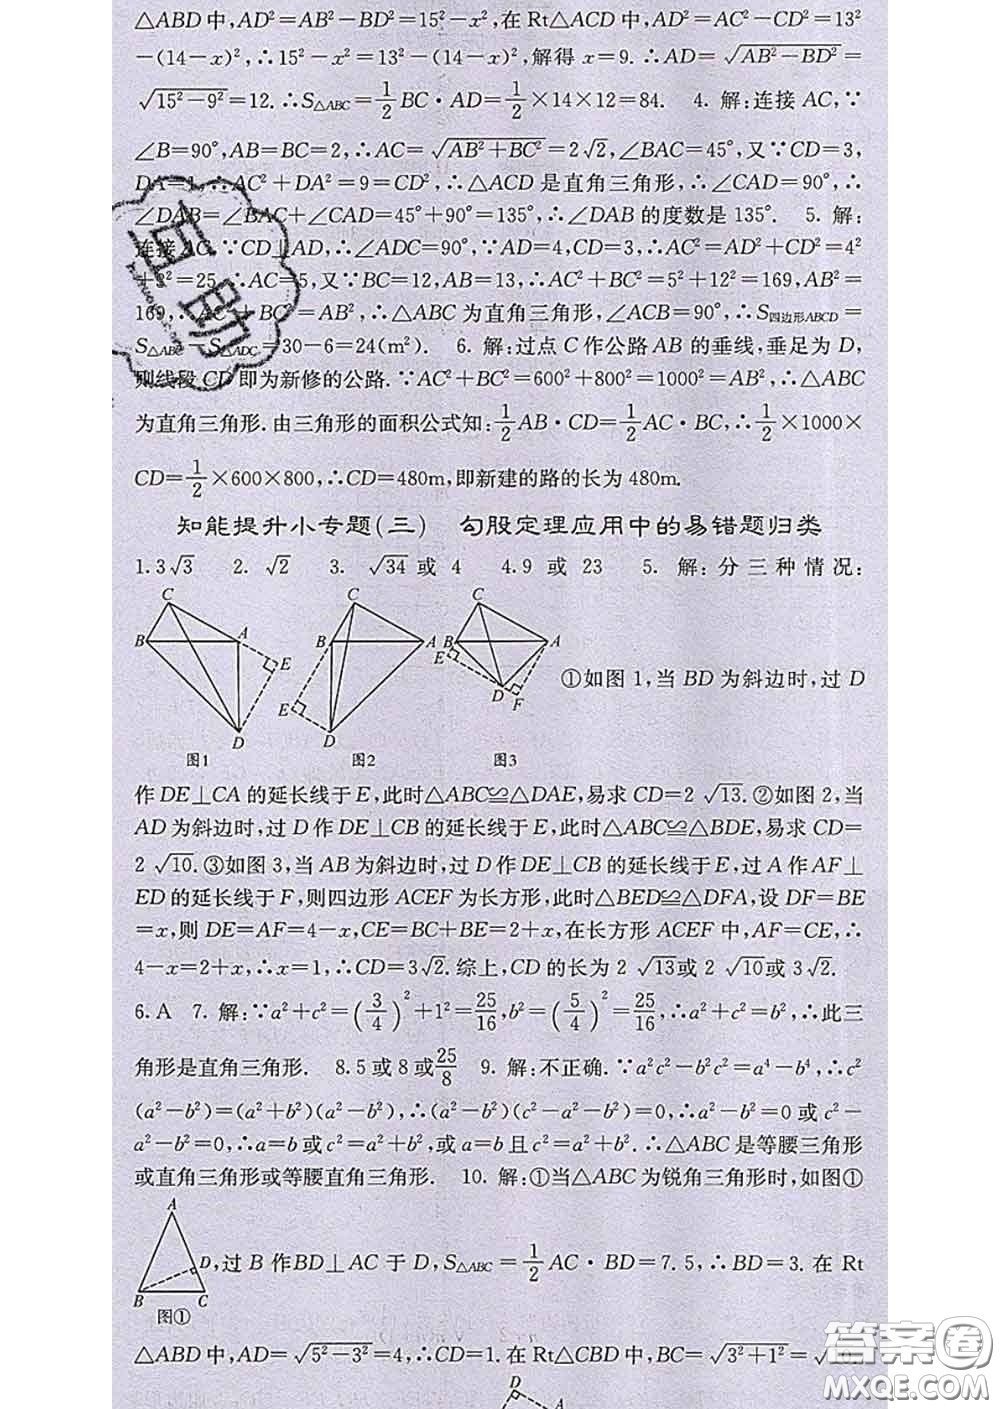 △ABD中,AD²=AB²-BD²=15²-x²,在Rt△ACD中,AD²=AC²-CD²=13²
-(14-x)²,∴15²-x²=13²-(14-x)²,解得x=9.∴AD=√(AB²-BD²)=
√(15²-9²)=12.∴S△ABC=1/2 BC·AD=1/2×14×12=84. 4. 解:连接AC,∵
∠B=90°,AB=BC=2,∴AC=√(AB²+BC²)=2√2,∠BAC=45°,又∵CD=3,
DA=1,∴AC²+DA²=9=CD²,∴△ACD是直角三角形,∴∠CAD=90°,∴
∠DAB=∠BAC+∠CAD=45°+90°=135°,∴∠DAB的度数是135°. 5. 解:
连接AC,∵CD⊥AD,∴∠ADC=90°,∵AD=4,CD=3,∴AC²=AD²+CD²=4²
+3²=25,∴AC=5,又∵BC=12,AB=13,∴AC²+BC²=5²+12²=169,AB²=
169,∴AC²+BC²=AB²,∴△ABC为直角三角形,∠ACB=90°,∴S四边形ABCD=
S△ABC-S△ADC=30-6=24(m²). 6. 解:过点C作公路AB的垂线,垂足为D,
则线段CD即为新修的公路.∵AC²+BC²=600²+800²=1000²=AB²,∴△ABC
为直角三角形.由三角形的面积公式知:1/2 AB·CD=1/2 AC·BC,∴1/2×1000×
CD=1/2×600×800,∴CD=480m,即新建的路的长为480m.
知能提升小专题(三) 勾股定理应用中的易错题归类
1.3√3 2. √2 3. √34或4 4.9或23 5. 解:分三种情况:
C B A E D 图1
C B A E D 图2
C B A E D F 图3
①如图1,当BD为斜边时,过D
作DE⊥CA的延长线于E,此时△ABC≌△DAE,易求CD=2√13.②如图2,当
AD为斜边时,过D作DE⊥CB的延长线于E,此时△ABC≌△BDE,易求CD=
2√10.③如图3,当AB为斜边时,过D作DE⊥CB的延长线于E,过A作AF⊥
ED的延长线于F,则四边形ACEF为长方形,此时△BED≌△DFA,设DF=BE
=x,则DE=AF=4-x,CE=BC+BE=2+x,在长方形ACEF中,AF=CE,∴
4-x=2+x,∴x=1,∴CD=3√2.综上,CD的长为2√13或2√10或3√2.
6.A 7. 解:∵a²+c²=(3/4)²+1²=25/16,b²=(5/4)²=25/16,∴a²+c²=b²,∴此三
角形是直角三角形. 8.5或8或25/8 9. 解:不正确.∵a²c²-b²c²=a⁴-b⁴,∴c²
(a²-b²)=(a²+b²)(a²-b²),∴(a²-b²)(c²-a²-b²)=0,∴a²-b²=0或c²-
a²-b²=0,∴a=b或c²=a²+b²,或a=b且c²=a²+b².∴△ABC是等腰三角形
或直角三角形或等腰直角三角形. 10. 解:①当△ABC为锐角三角形时,如图①
A D B C 图①
,过B作BD⊥AC于D,S△ABC=1/2 AC·BD=7.5,∴BD=3.在Rt
△ABD中,AD=√(5²-3²)=4,∴CD=1.在Rt△CBD中,BC=√(3²+1²)=√10.
D A
答案圈
MXQE.COM